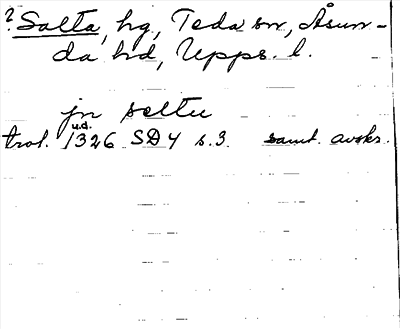 ? Salta, hg, Teda sn, Åsun-
da hd, Upps. l.
jn saltu
trol. u.d. 1326 SD 4 s. 3. samt. avskr.